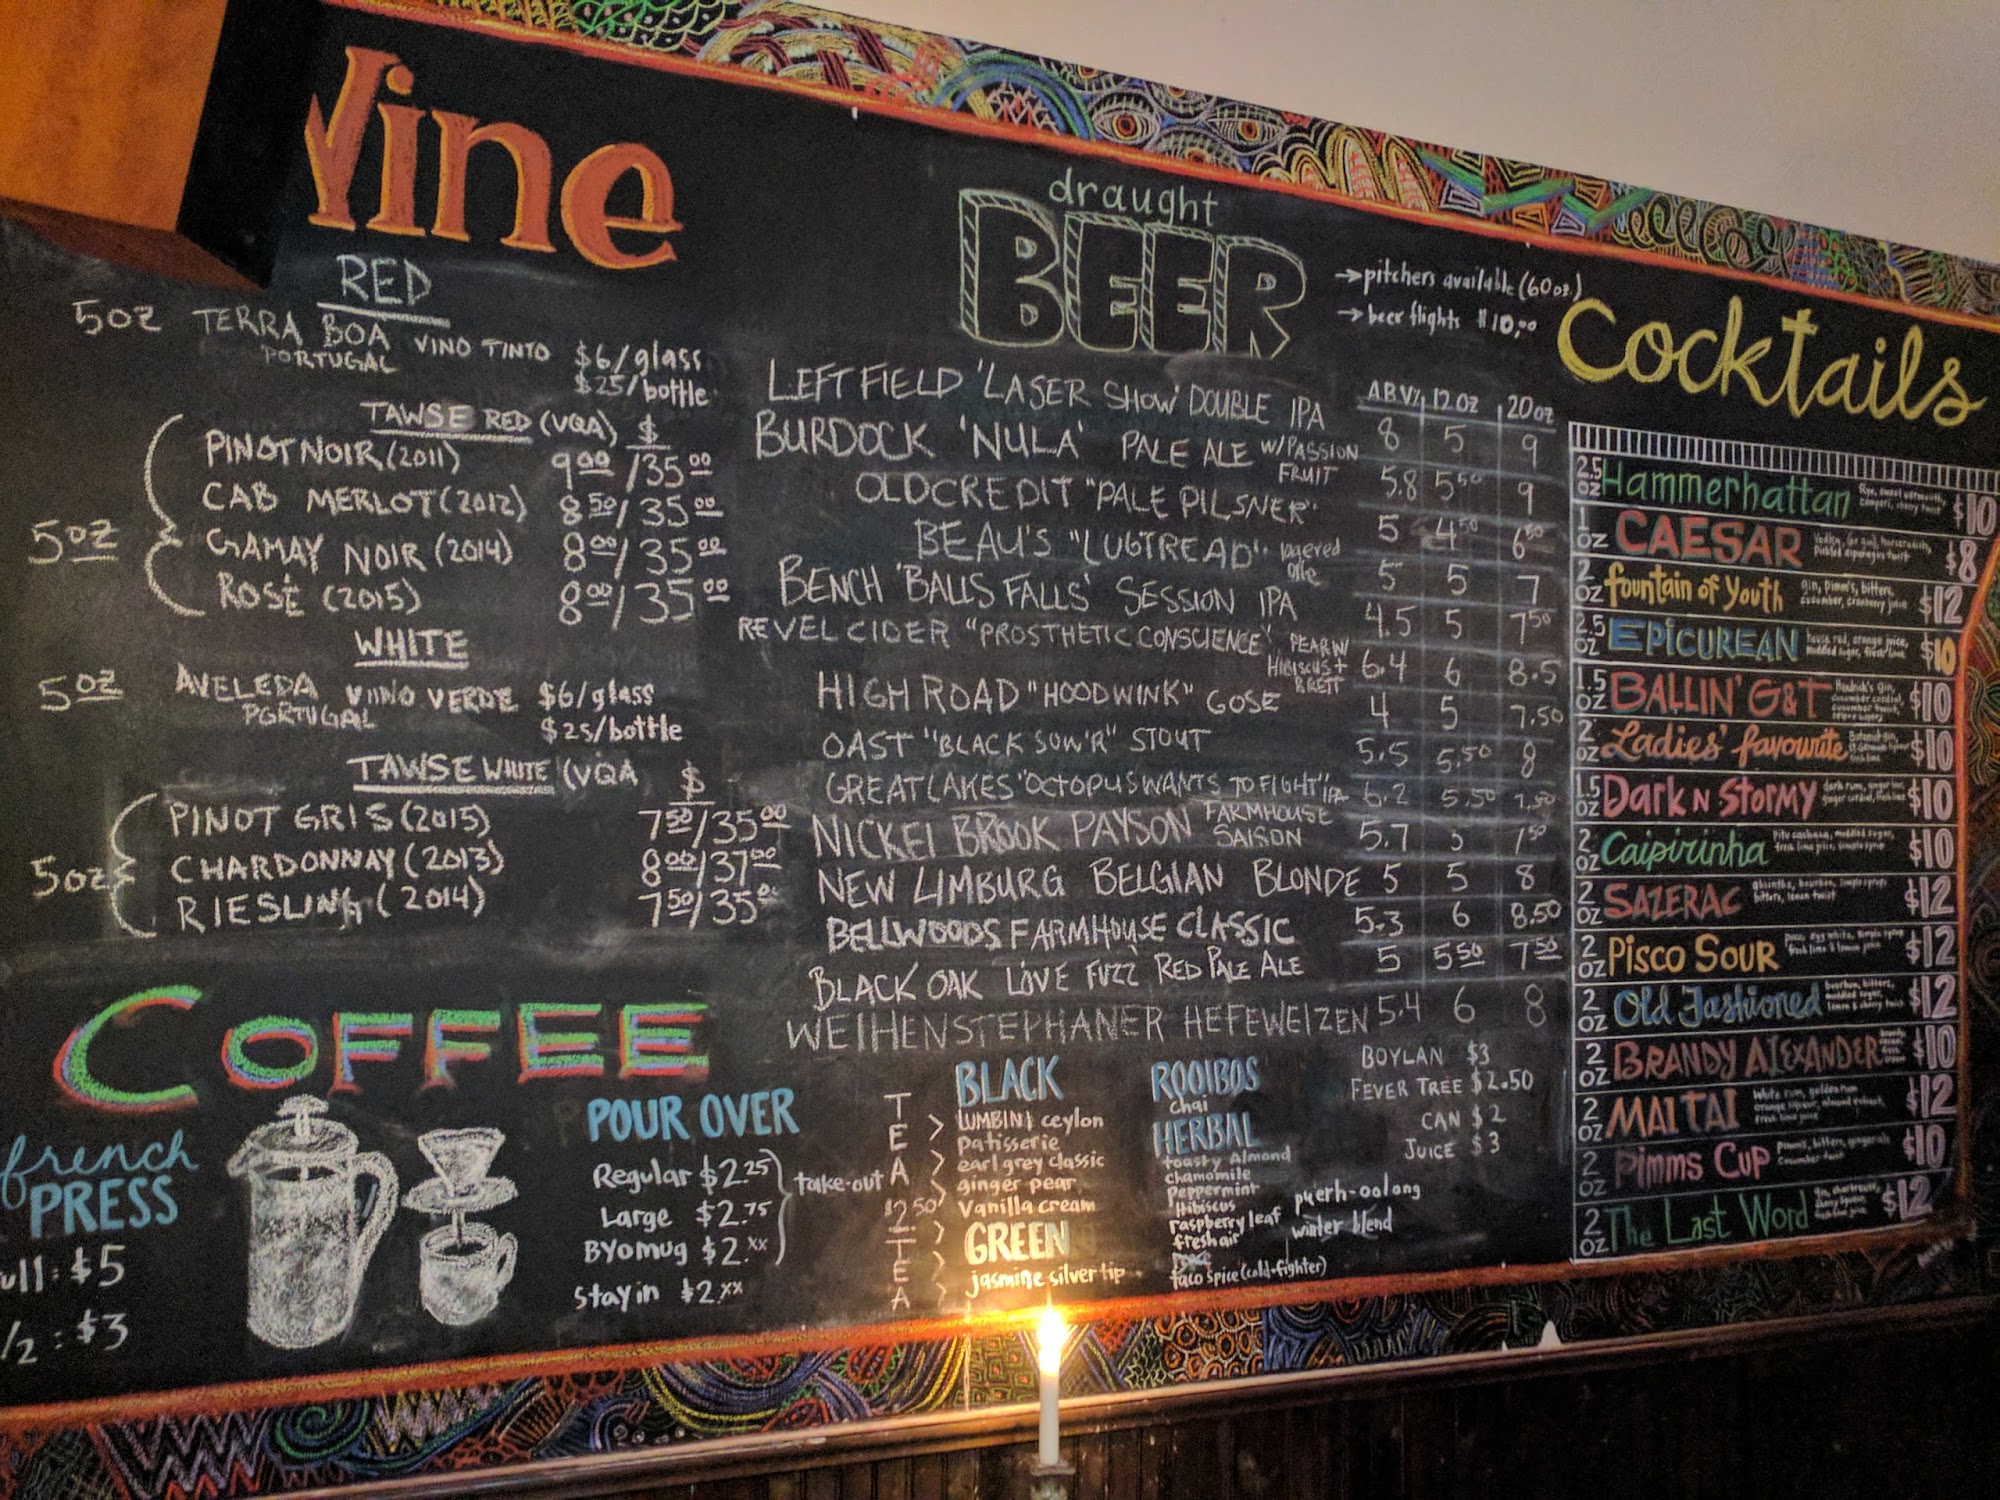 Wine
RED
5oz TERRA BOA VINO TINTO $6/glass
PORTUGAL $25/bottle
TAWSE RED (VQA) $
5oz
PINOT NOIR (2011) 9.00/35.00
CAB MERLOT (2012) 8.50/35.00
GAMAY NOIR (2014) 8.00/35.00
ROSÉ (2015) 8.00/35.00
WHITE
5oz AVELEDA VIINO VERDE $6/glass
PORTUGAL $25/bottle
TAWSE WHITE (VQA $
5oz
PINOT GRIS (2015) 7.50/35.00
CHARDONNAY (2013) 8.00/37.00
RIESLING (2014) 7.50/35.00
COFFEE
french
PRESS
ull: $5
/2: $3
POUR OVER
Regular $2.25
Large $2.75
BYOmug $2.xx
take-out
Stay in $2.xx
draught
BEER
→pitchers available (60oz.)
→beer flights $10.00
ABV% 12oz 20oz
LEFT FIELD 'LASER SHOW' DOUBLE IPA 8 5 9
BURDOCK 'NULA' PALE ALE W/PASSION FRUIT 5.8 5.50 9
OLD CREDIT "PALE PILSNER" 5 4.50 6.50
BEAU'S "LUGTREAD" lagered ale 5 5 7
BENCH 'BALLS FALLS' SESSION IPA 4.5 5 7.50
REVEL CIDER "PROSTHETIC CONSCIENCE" PEAR W/ HIBISCUS + BRETT 6.4 6 8.5
HIGH ROAD "HOODWINK" GOSE 4 5 7.50
OAST "BLACK SOW'R" STOUT 5.5 5.50 8
GREAT LAKES "OCTOPUS WANTS TO FIGHT" IPA 6.2 5.50 7.50
NICKEL BROOK PAYSON FARMHOUSE SAISON 5.7 5 7.50
NEW LIMBURG BELGIAN BLONDE 5 5 8
BELLWOODS FARMHOUSE CLASSIC 5.3 6 8.50
BLACK OAK LOVE FUZZ RED PALE ALE 5 5.50 7.50
WEIHENSTEPHANER HEFEWEIZEN 5.4 6 8
TEA
$2.50
TEA
BLACK
LUMBINI ceylon
patisserie
earl grey classic
ginger pear
Vanilla cream
GREEN
jasmine silver tip
ROOIBOS
chai
HERBAL
toasty Almond
chamomile
Peppermint
Hibiscus
raspberry leaf
fresh air
taco spice (cold-fighter)
puerh-oolong
winter blend
BOYLAN $3
FEVER TREE $2.50
CAN $2
JUICE $3
Cocktails
2.5 OZ Hammerhattan Rye, sweet vermouth, Campari, cherry twist $10
1 OZ CAESAR Vodka, (or gin), horseradish, Pickled asparagus twist $8
2 OZ fountain of Youth gin, pimm's, bitters, cucumber, cranberry juice $12
2.5 OZ EPICUREAN house red, orange juice, muddled sugar, fresh lime $10
1.5 OZ BALLIN' G&T Hendrick's gin, cucumber cordial, cucumber twist, $10
2 OZ Ladies' favourite $10
1.5 OZ Dark N Stormy dark rum, ginger beer, ginger cordial, fresh lime $10
2 OZ Caipirinha Pitu cachaca, muddled sugar, fresh lime juice, simple syrup $10
2 OZ SAZERAC absinthe, bourbon, simple syrup, bitters, lemon twist $12
2 OZ PISCO SOUR Pisco, egg white, simple syrup fresh lime & lemon juice $12
2 OZ Old Fashioned bourbon, bitters, muddled sugar, lemon & cherry twist $12
2 OZ BRANDY ALEXANDER $10
2 OZ MAI TAI White rum, golden rum orange liqueur, almond extract, fresh lime juice $12
2 OZ Pimms Cup Pimms, bitters, ginger ale Cucumber twist $10
2 OZ The Last Word $12